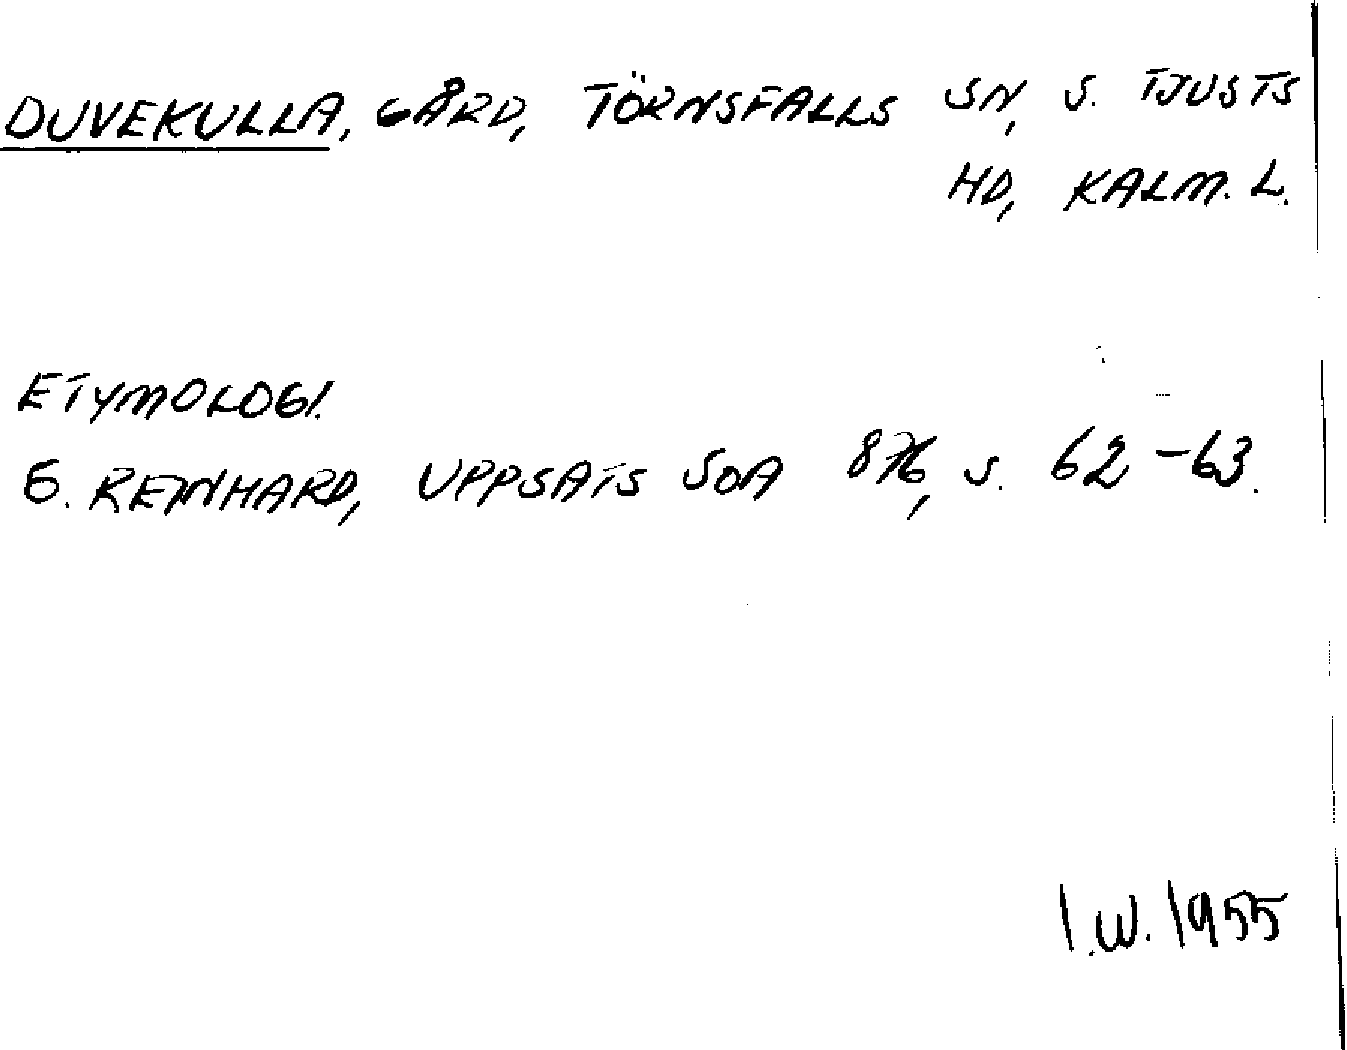 DUVEKULLA, GÅRD, TÖRNSFALLS SN, S. TJUSTS
HD, KALM. L.
ETYMOLOGI.
G. REINHARD, UPPSATS SOA 876, S. 62-63.
I.W. 1955